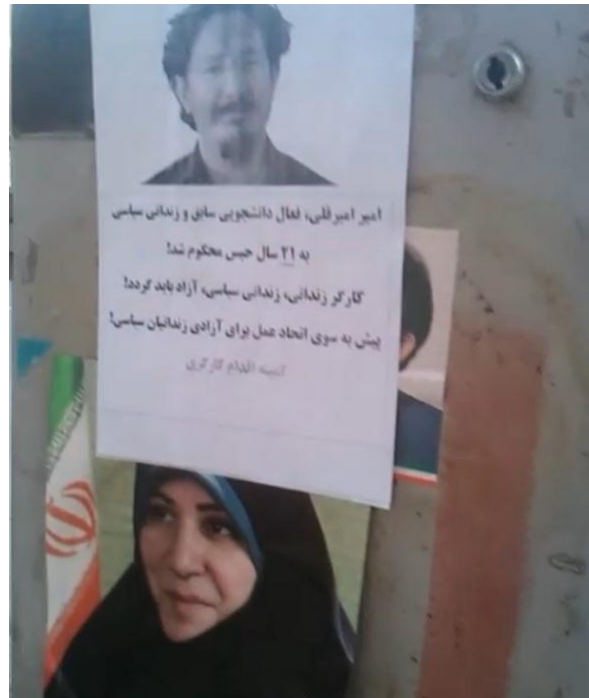 امیر امیرقلی، فعال دانشجویی سابق و زندانی سیاسی
به ۲۱ سال حبس محکوم شد!
کارگر زندانی، زندانی سیاسی، آزاد باید گردد!
پیش به سوی اتحاد عمل برای آزادی زندانیان سیاسی!
کمیته اقدام کارگری